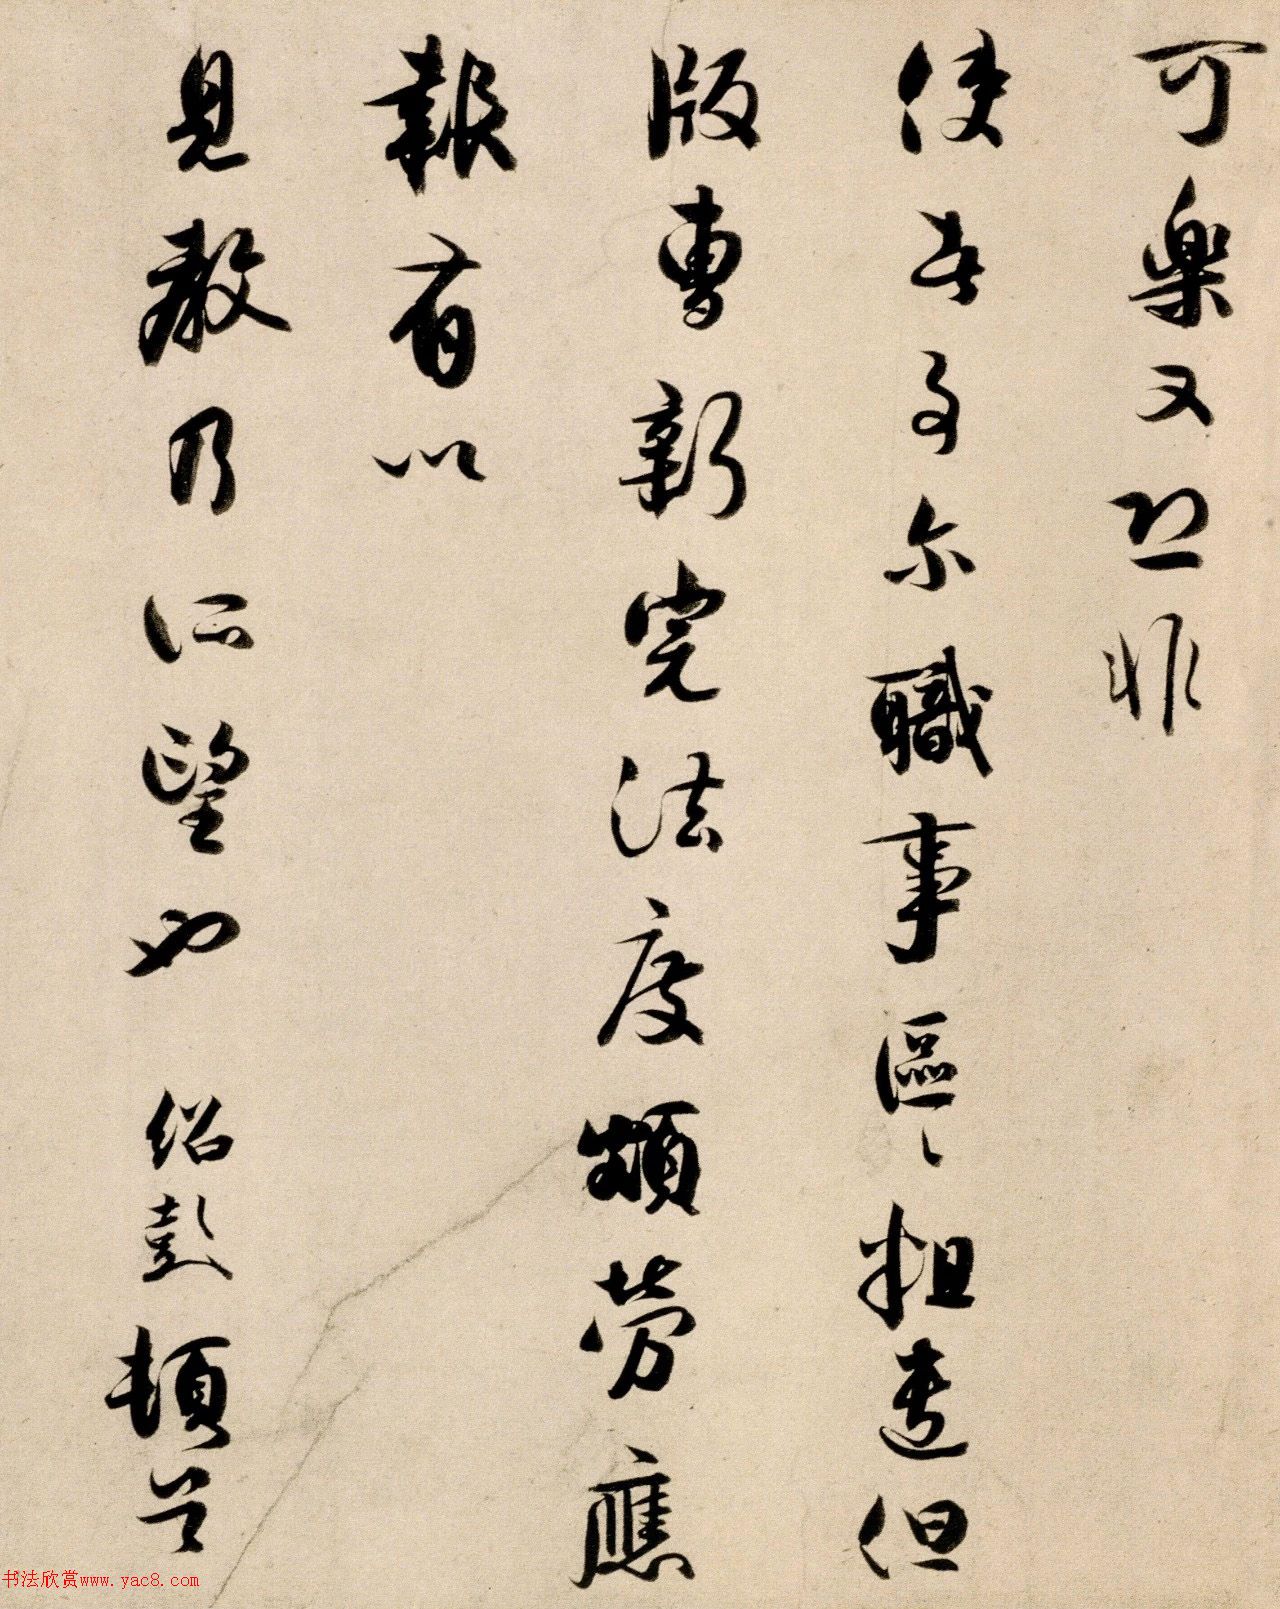 可樂又恐非
使者尔職事區〻粗遣但
版曹新完法度頗勞應
報有以
見教乃所望也 紹彭頓首
书法欣赏www.yac8.com